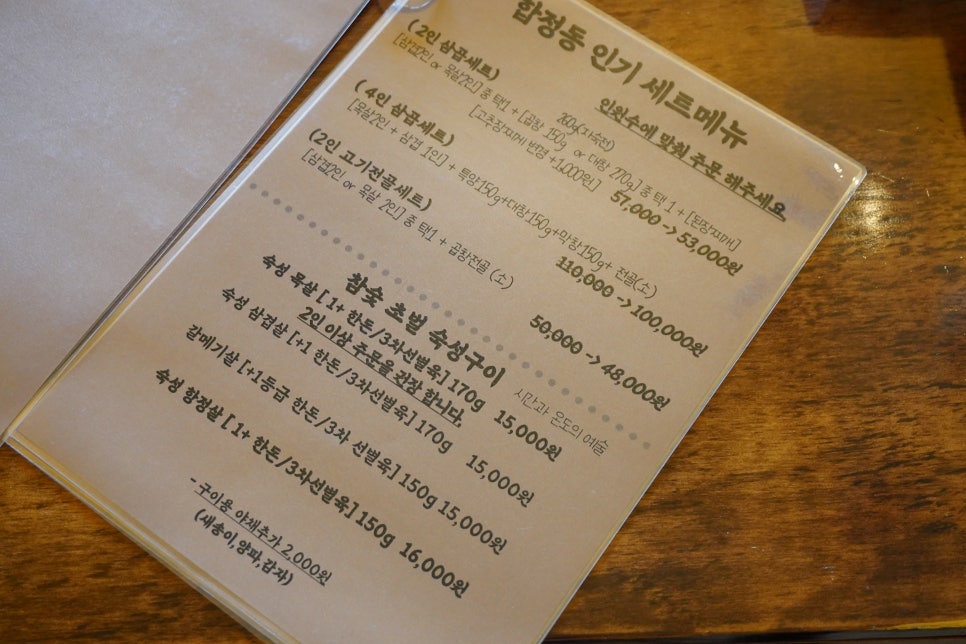 합정동 인기 세트메뉴
인원수에 맞춰 주문 해주세요
(2인 삼곱세트)
260g(자숙전)
[삼겹2인 or 목살2인] 중 택1 + [곱창 150g or 대창 270g] 중 택 1 + [된장찌개]
[고추장찌개 변경 +1,000원] 57,000 -> 53,000원
(4인 삼곱세트)
[목살2인 + 삼겹 1인] + 특양150g+대창150g+막창150g+ 전골(소)
110,000 -> 100,000원
(2인 고기전골세트)
[삼겹2인 or 목살 2인] 중 택1 + 곱창전골 (소)
50,000 -> 48,000원
참숯 초벌 숙성구이 시간과 온도의 예술
2인 이상 주문을 권장 합니다.
숙성 목살 [ 1+ 한돈/3차선별육] 170g 15,000원
숙성 삼겹살 [+1 한돈/3차선별육] 170g 15,000원
갈메기살 [+1등급 한돈/3차 선별육] 150g 15,000원
숙성 항정살 [ 1+ 한돈/3차선별육] 150g 16,000원
- 구이용 야채추가 2,000원
(새송이,양파,감자)